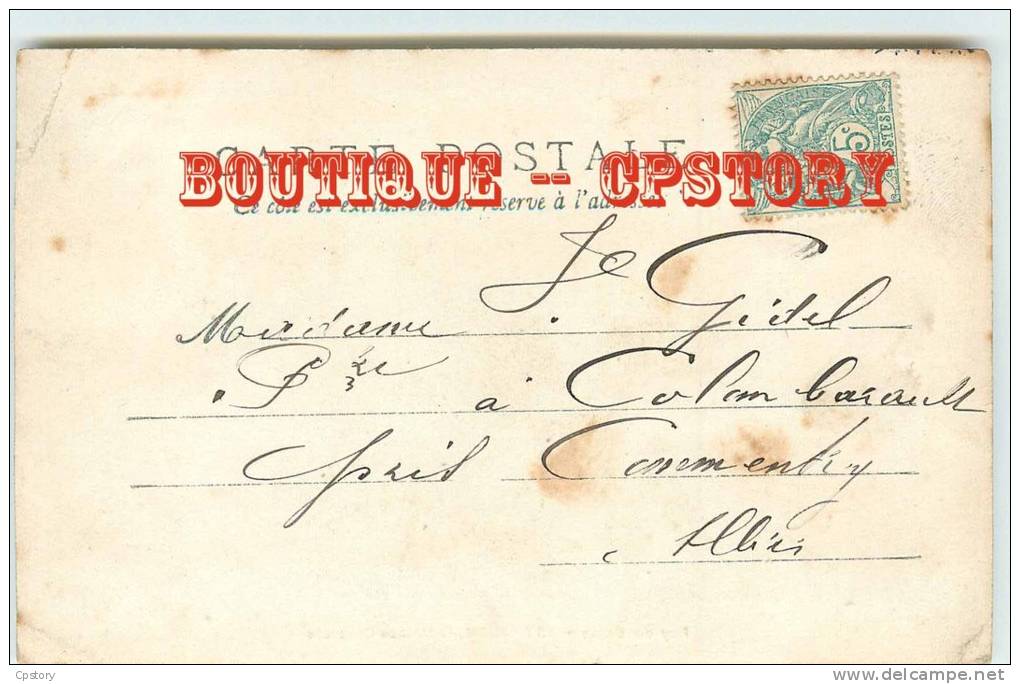 CARTE POSTALE
BOUTIQUE -- CPSTORY
Ce côté est exclusivement réservé à l'adresse
5c
POSTES
Madame Gidel
à Colombarault
près Commentry
Allier
Cpstory
delcampe.net